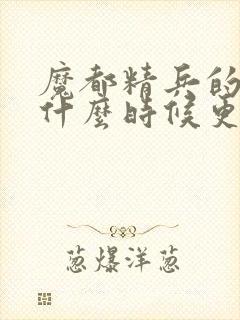 魔都精兵的
什麼時候更
葱爆洋葱